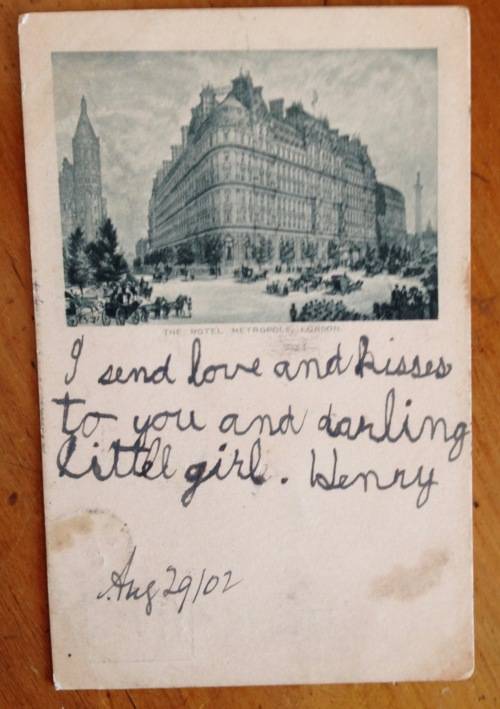 THE HOTEL METROPOLE, LONDON.
I send love and kisses
to you and darling
littel girl. Henry
Aug 29/02